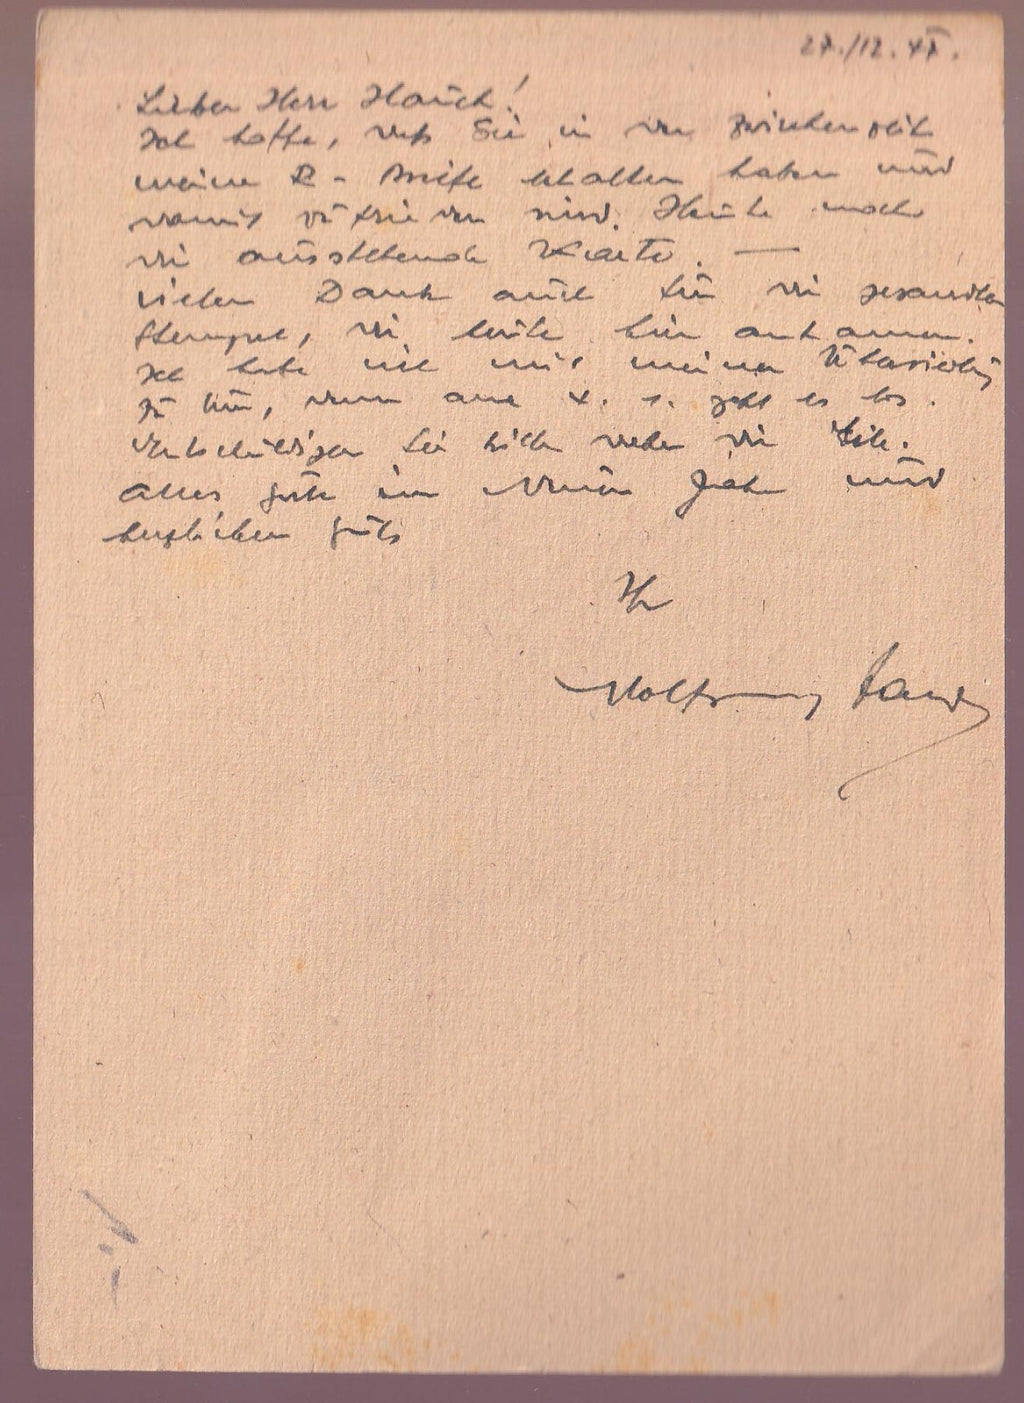 27./12. 47.
Lieber Herr Hauck!
Ich hoffe, daß Sie in der Zwischenzeit
meine R-Briefe erhalten haben und
damit zufrieden sind. Heute noch
die ausstehende Karte. —
Vielen Dank auch für die gesandten
Stempel, die heute hier ankamen.
Ich habe viel mit meiner
zu tun, denn am 4. 1. geht es los.
Entschuldigen Sie bitte die Eile.
Alles gute im Neuen Jahr und
herzlichen Gruß
Ihr
Wolfgang